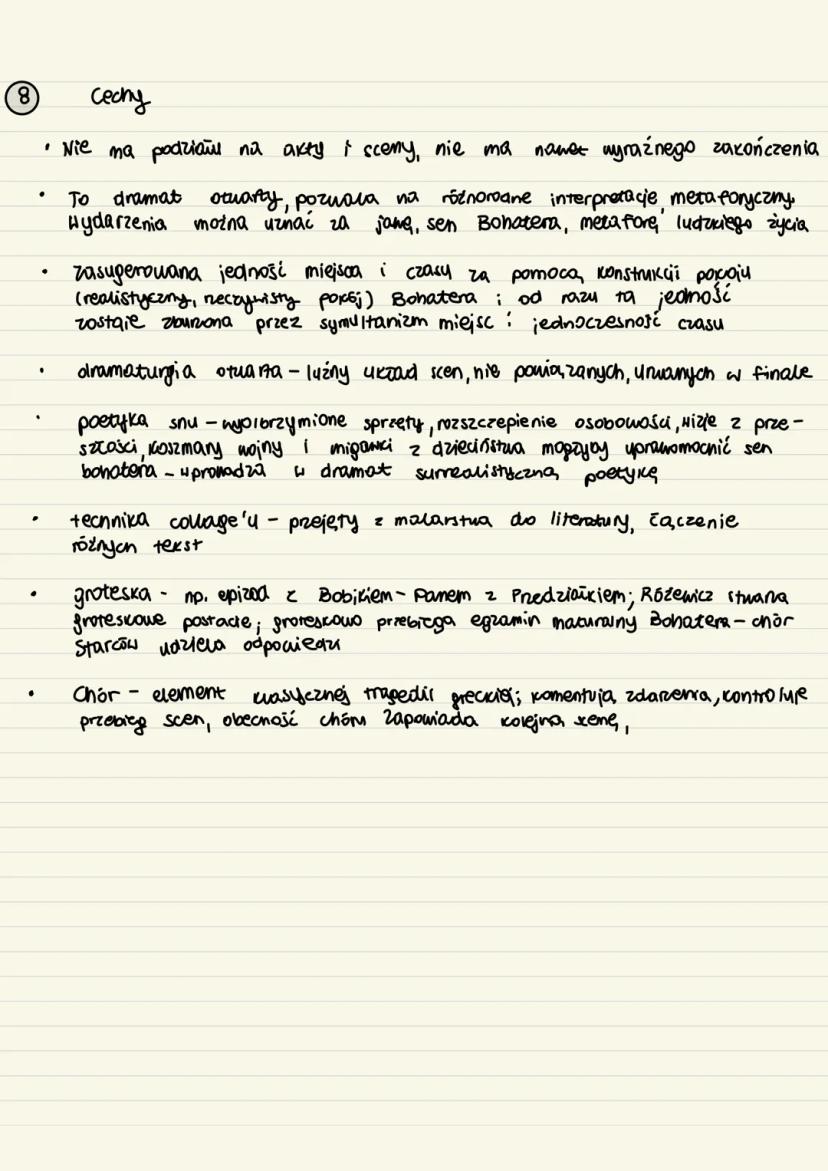 8 Cechy
• Nie ma podziału na akty i sceny, nie ma nawet wyraźnego zakończenia
• To dramat otwarty, pozwala na różnorodne interpretacje, metaforyczny.
Wydarzenia można uznać za jawę, sen Bohatera, metaforę ludzkiego życia
• zasugerowana jedność miejsca i czasu za pomocą konstrukcji pokoju
(realistyczny, rzeczywisty pokój) Bohatera ; od razu ta jedność
zostaje zburzona przez symultanizm miejsc i jednoczesność czasu
• dramaturgia otwarta - luźny układ scen, nie powiązanych, urwanych w finale
• poetyka snu - wyolbrzymione sprzęty, rozszczepienie osobowości, wizje z prze-
szłości, koszmary wojny i migawki z dzieciństwa mogłyby uprawomocnić sen
bohatera - wprowadza w dramat surrealistyczną poetykę
• technika collage'u - przejęty z malarstwa do literatury, łączenie
różnych tekst
• groteska - np. epizod z Bobikiem - Panem z Przedziałkiem; Różewicz stwarza
groteskowe postacie; groteskowo przebiega egzamin maturalny Bohatera - chór
Starców udziela odpowiedzi
• Chór - element klasycznej tragedii greckiej; komentują zdarzenia, kontroluje
przebieg scen, obecność chóru zapowiada kolejną scenę,